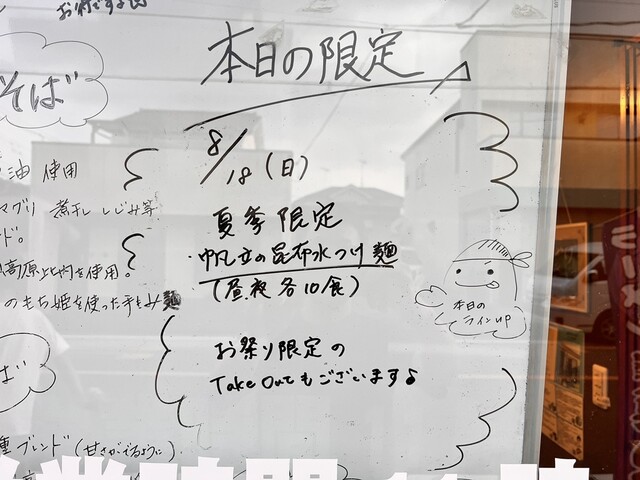 本日の限定
8/18(日)
夏季限定
・帆立の昆布水つけ麺
(昼夜各10食)
お祭り限定の
Take Outもございます♪
本日の
ラインUP
そば
油 使用
マグリ 煮干し しじみ等
ード。
高原比内を使用。
のもち姫を使った手もみ麺
ば
種ブレンド(甘さがでるように)
ラーメン